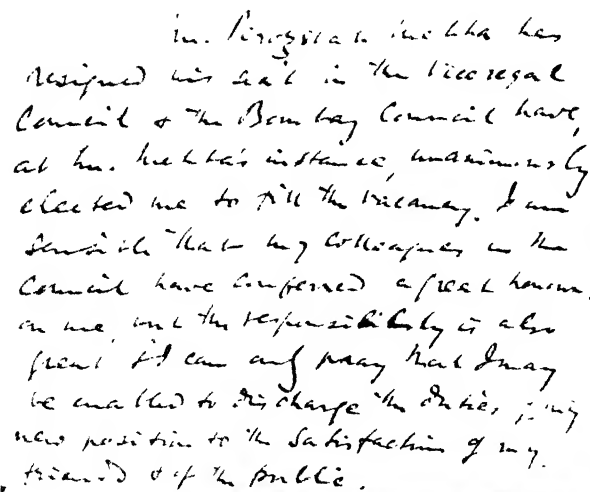 Mr. Pirozshah Mehta has
resigned his seat in the Viceregal
Council & the Bombay Council have,
at Mr. Mehta's instance, unanimously
elected me to fill the vacancy. I am
sensible that my colleagues in the
Council have conferred a great honour
on me but the responsibility is also
great & I can only pray that I may
be enabled to discharge the duties of my
new position to the satisfaction of my
friends & of the public.